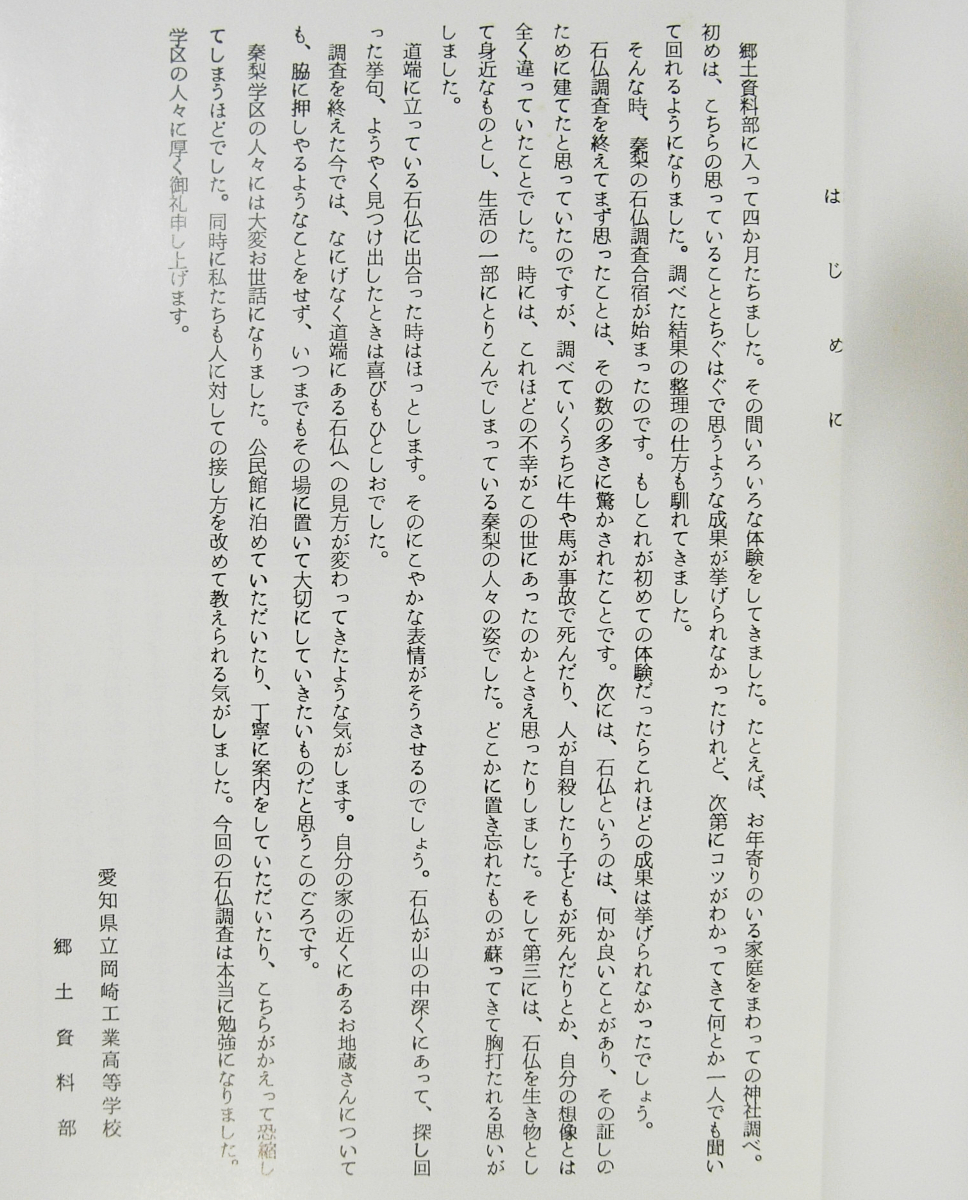 はじめに
郷土資料部に入って四か月たちました。その間いろいろな体験をしてきました。たとえば、お年寄りのいる家庭をまわっての神社調べ。
初めは、こちらの思っていることとちぐはぐで思うような成果が挙げられなかったけれど、次第にコツがわかってきて何とか一人でも聞い
て回れるようになりました。調べた結果の整理の仕方も馴れてきました。
そんな時、秦梨の石仏調査合宿が始まったのです。もしこれが初めての体験だったらこれほどの成果は挙げられなかったでしょう。
石仏調査を終えてまず思ったことは、その数の多さに驚かされたことです。次には、石仏というのは、何か良いことがあり、その証しの
ために建てたと思っていたのですが、調べていくうちに牛や馬が事故で死んだり、人が自殺したり子どもが死んだりとか、自分の想像とは
全く違っていたことでした。時には、これほどの不幸がこの世にあったのかとさえ思ったりしました。そして第三には、石仏を生き物とし
て身近なものとし、生活の一部にとりこんでしまっている秦梨の人々の姿でした。どこかに置き忘れたものが蘇ってきて胸打たれる思いが
しました。
道端に立っている石仏に出合った時はほっとします。そのにこやかな表情がそうさせるのでしょう。石仏が山の中深くにあって、探し回
った挙句、ようやく見つけ出したときは喜びもひとしおでした。
調査を終えた今では、なにげなく道端にある石仏への見方が変わってきたような気がします。自分の家の近くにあるお地蔵さんについて
も、脇に押しやるようなことをせず、いつまでもその場に置いて大切にしていきたいものだと思うこのごろです。
秦梨学区の人々には大変お世話になりました。公民館に泊めていただいたり、丁寧に案内をしていただいたり、こちらがかえって恐縮し
てしまうほどでした。同時に私たちも人に対しての接し方を改めて教えられる気がしました。今回の石仏調査は本当に勉強になりました。
学区の人々に厚く御礼申し上げます。
愛知県立岡崎工業高等学校
郷土資料部